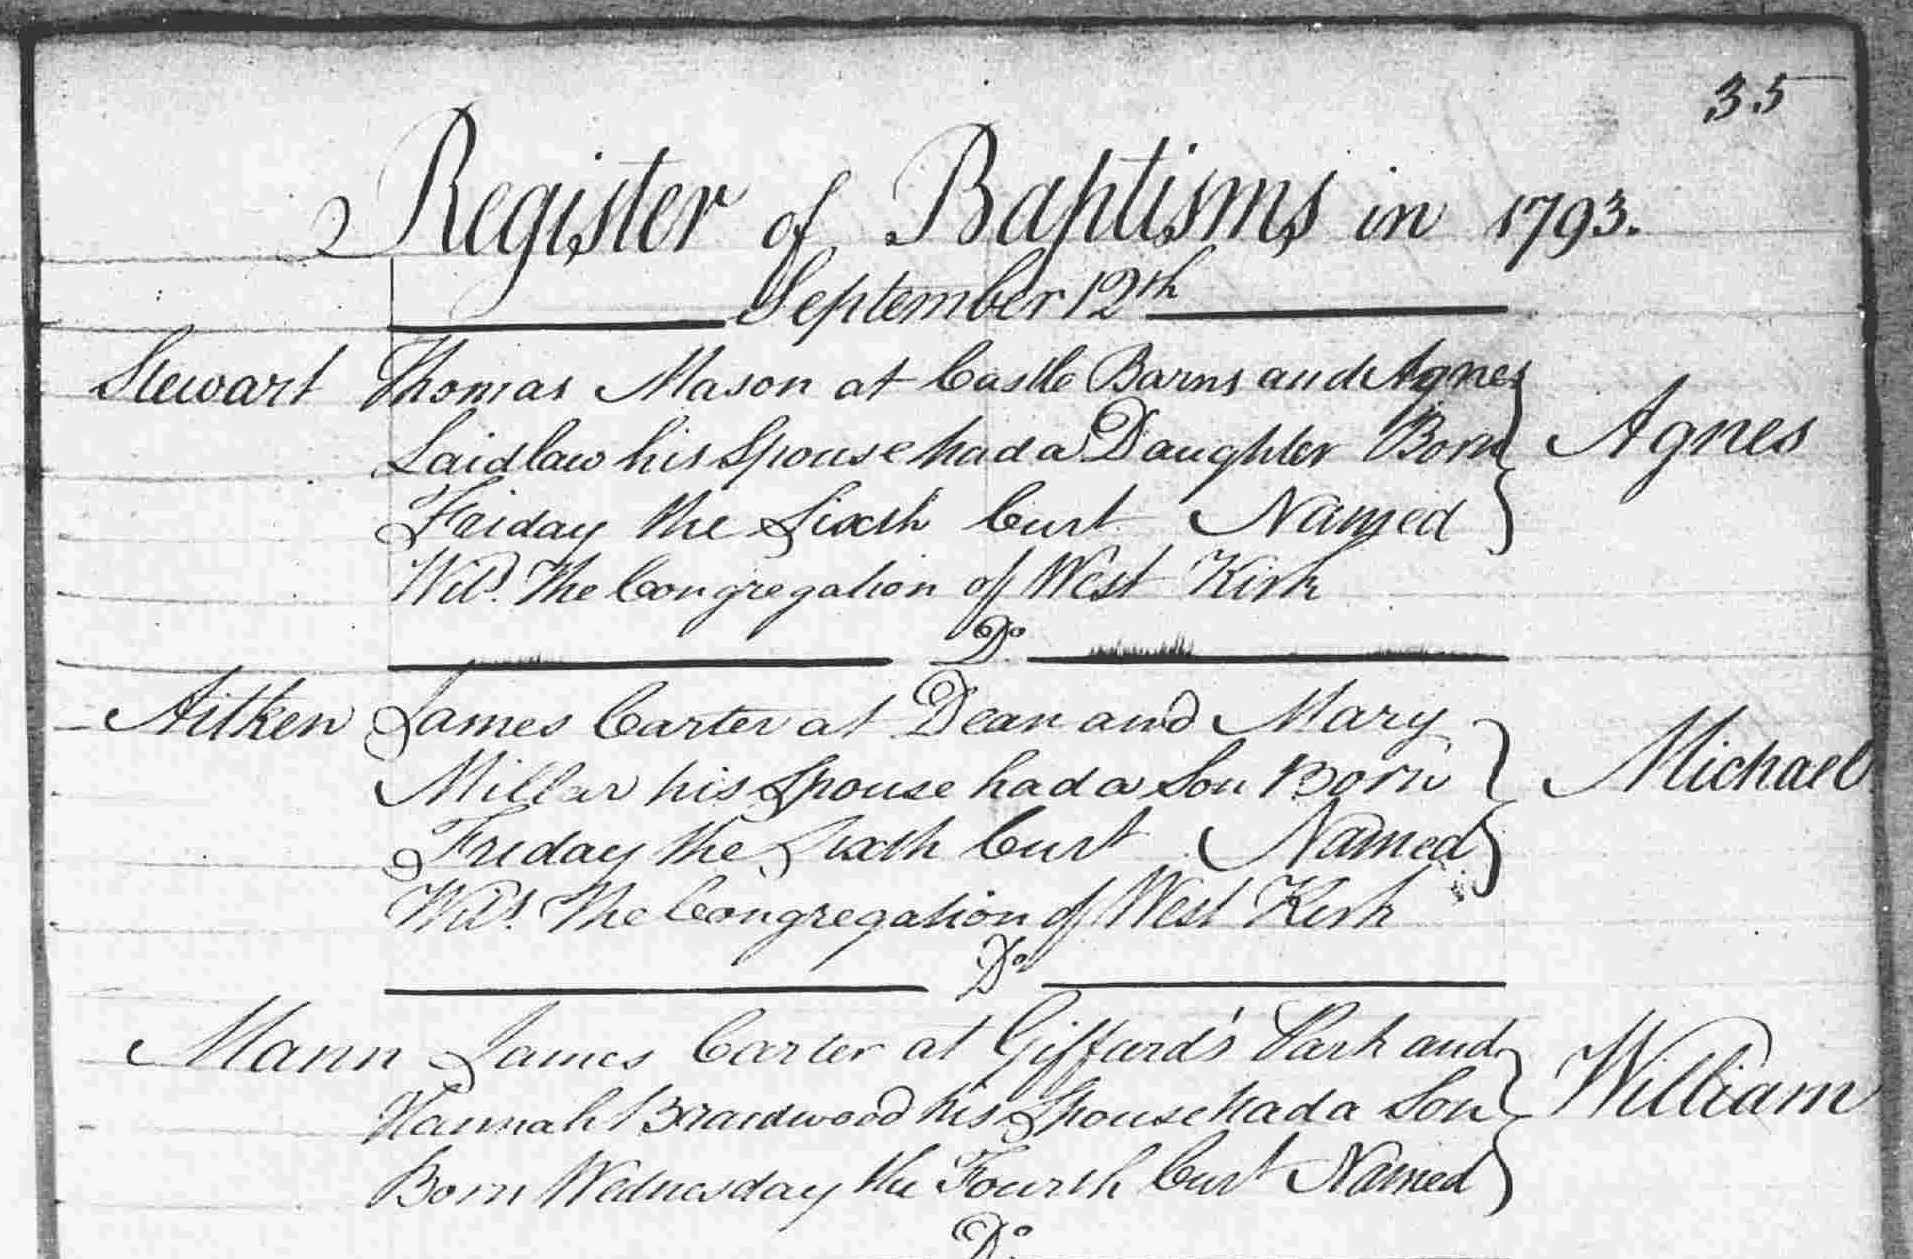 35
Register of Baptisms in 1793.
September 12th
Stewart Thomas Mason at Castle Barns and Agnes
Laidlaw his Spouse had a Daughter Born Agnes
Friday the Sixth Curt Named
Wits. The Congregation of West Kirk
Do
Aitken James Carter at Dean and Mary
Millar his Spouse had a Son Born Michael
Friday the Sixth Curt Named
Wits. The Congregation of West Kirk
Do
Mann James Carter at Giffard's Park and
Hannah Braidwood his Spouse had a Son William
Born Wednesday the Fourth Curt Named
Do